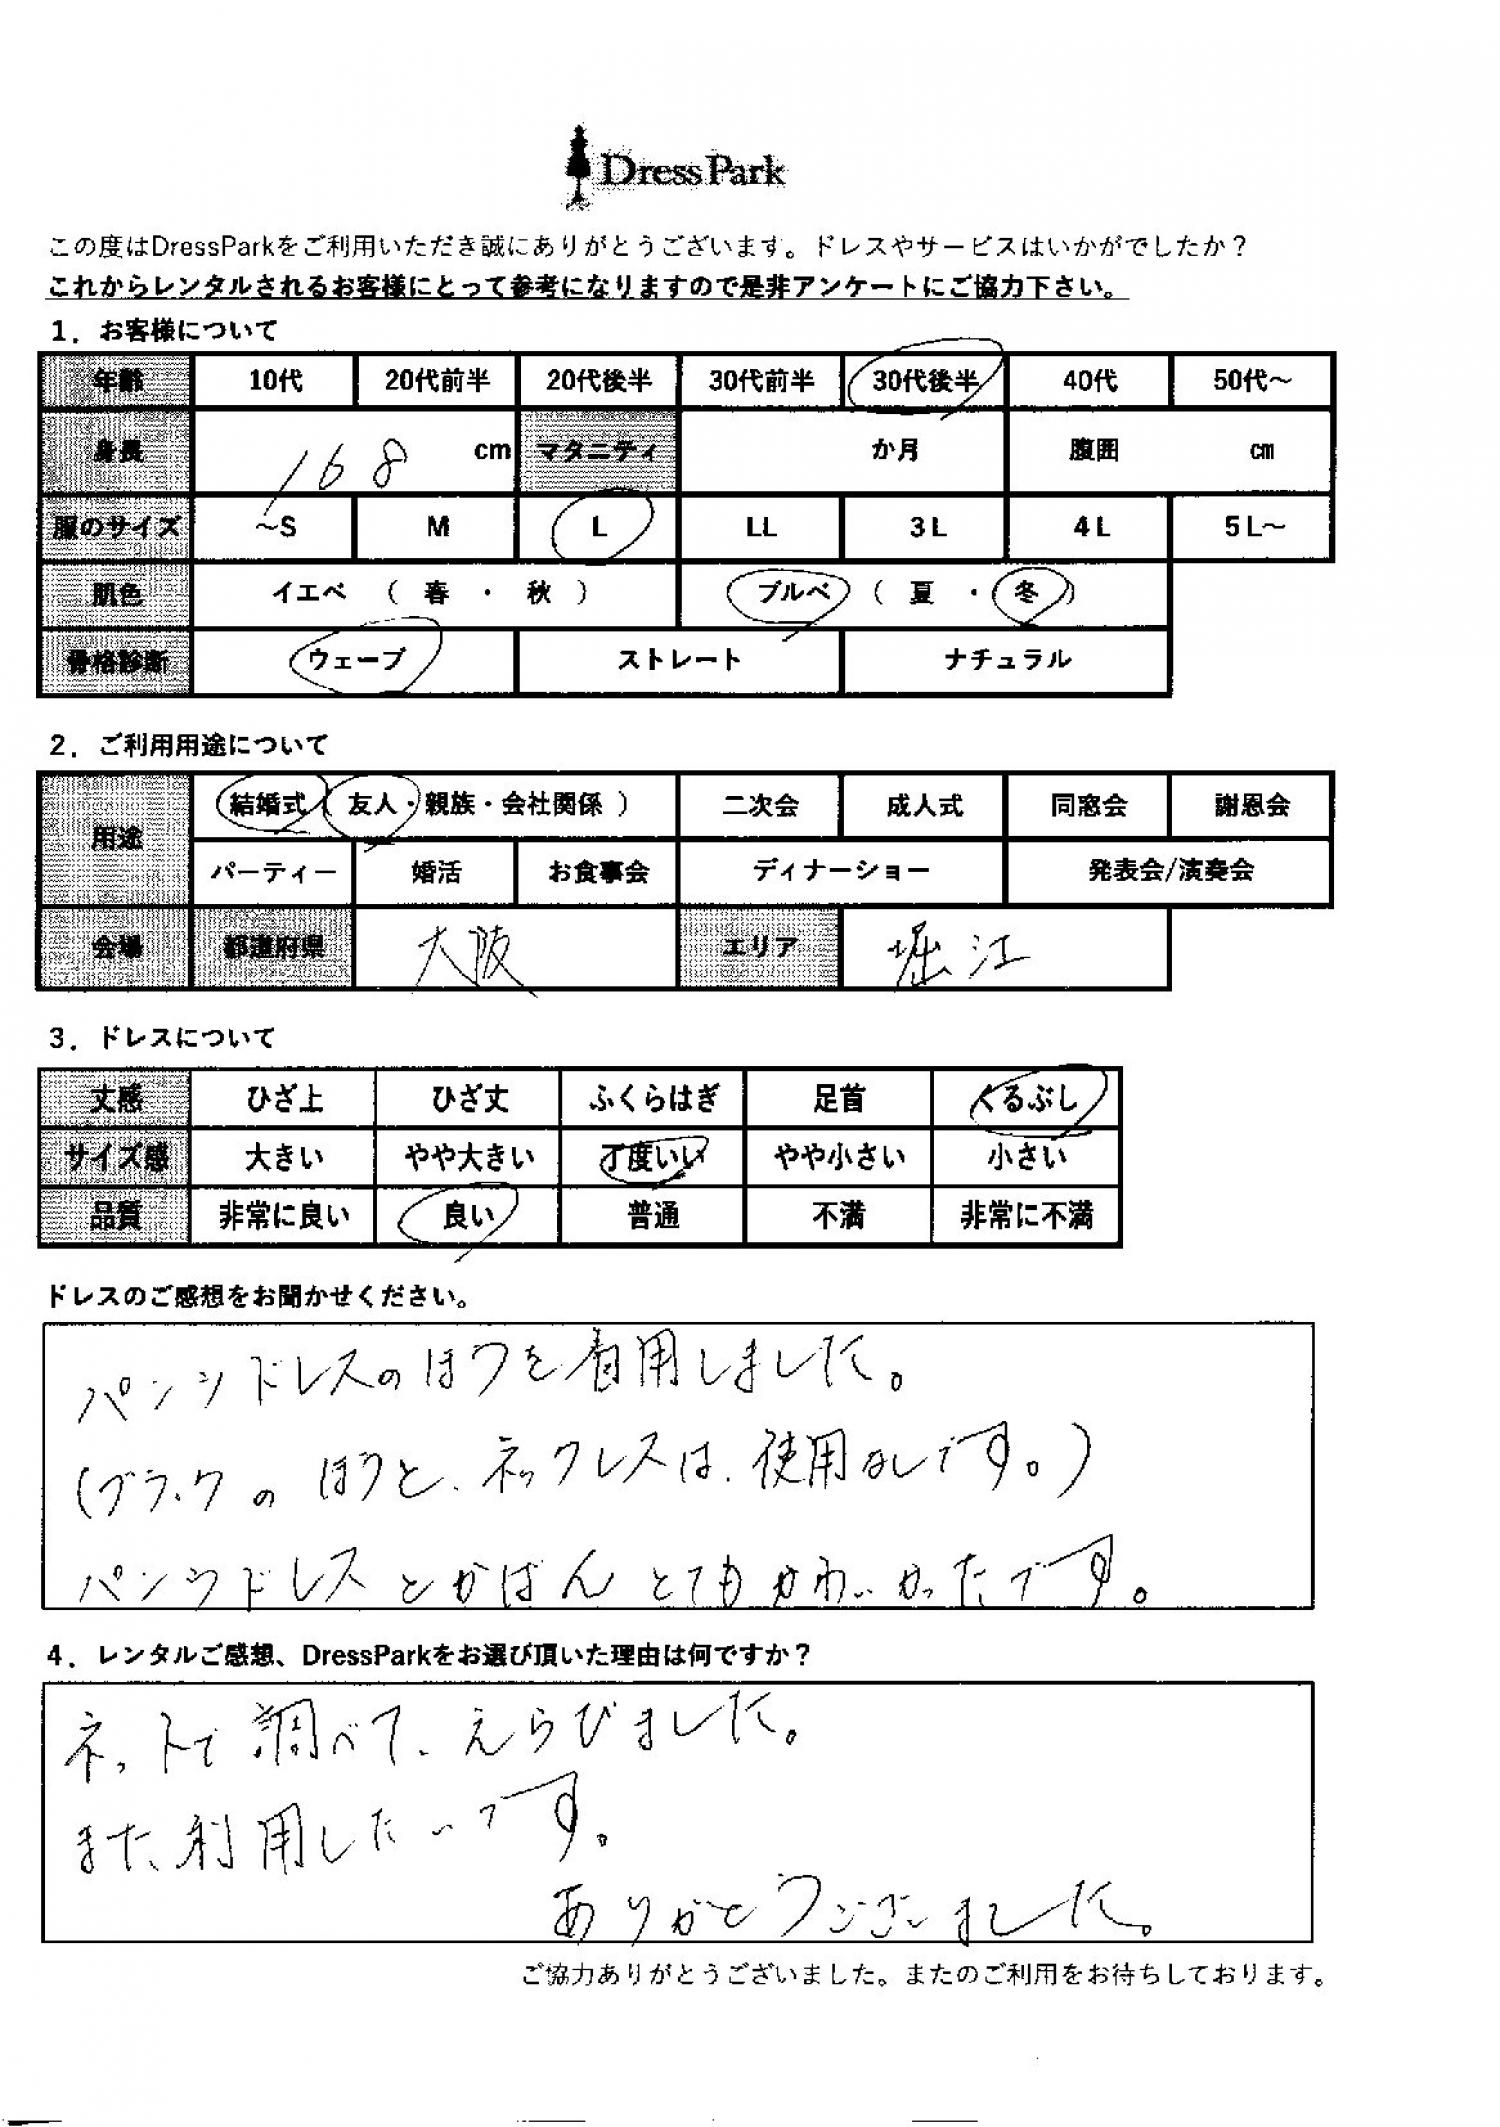 DressPark
この度はDressParkをご利用いただき誠にありがとうございます。ドレスやサービスはいかがでしたか？
これからレンタルされるお客様にとって参考になりますので是非アンケートにご協力下さい。
1．お客様について
年齢 10代 20代前半 20代後半 30代前半 30代後半 40代 50代～
身長 168 cm マタニティ か月 腹囲 cm
服のサイズ ～S M L LL 3L 4L 5L～
肌色 イエベ （ 春 ・ 秋 ） ブルベ （ 夏 ・ 冬 ）
骨格診断 ウェーブ ストレート ナチュラル
2．ご利用用途について
用途 結婚式（ 友人・親族・会社関係 ） 二次会 成人式 同窓会 謝恩会
パーティー 婚活 お食事会 ディナーショー 発表会/演奏会
会場 都道府県 大阪 エリア 堀江
3．ドレスについて
丈感 ひざ上 ひざ丈 ふくらはぎ 足首 くるぶし
サイズ感 大きい やや大きい 丁度いい やや小さい 小さい
品質 非常に良い 良い 普通 不満 非常に不満
ドレスのご感想をお聞かせください。
パンツドレスのほうを着用しました。
(ブラックのほうと、ネックレスは、使用なしです。)
パンツドレスとかばんとてもかわいかったです。
4．レンタルご感想、DressParkをお選び頂いた理由は何ですか？
ネットで調べて、えらびました。
また、利用したいです。
ありがとうございました。
ご協力ありがとうございました。またのご利用をお待ちしております。